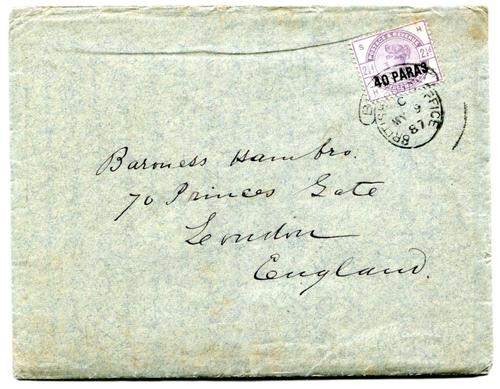 S H
2½ 2½
40 PARAS
H S
BRITISH OFFICE
C
MY 9
87
Baroness Hambro.
70 Princes Gate
London
England.